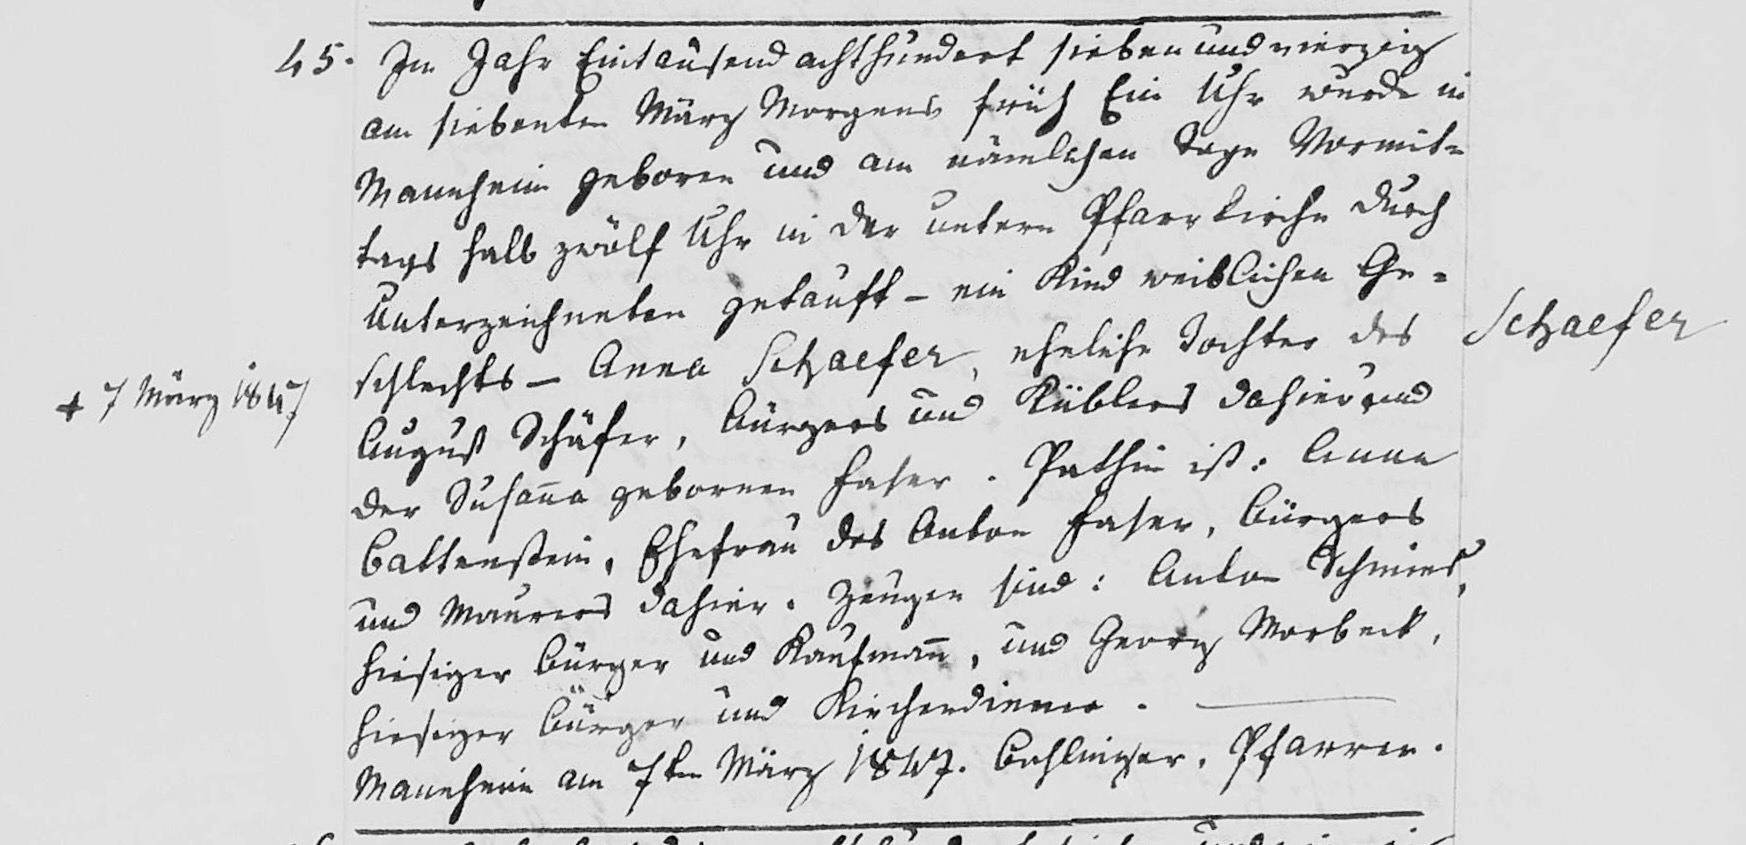 45. Im Jahr Eintausend achthundert sieben und vierzig
am siebenten März Morgens früh Ein Uhr wurde in
Mannheim geboren und am nämlichen Tage Vormit-
tags halb zwölf Uhr in der untern Pfarrkirche durch
Unterzeichneten getauft - ein Kind weiblichen Ge-
schlechts - Anna Schaefer, eheliche Tochter des
Schaefer
+ 7 März 1847
August Schäfer, Bürgers und Küblers dahier und
der Susan̄a gebornen Faser. Pathin ist: Anna
Battenstein, Ehefrau des Anton Faser, Bürgers
und Maurers dahier. Zeugen sind: Anton Schmied,
hiesiger Bürger und Kaufman̄, und Georg Morbeck,
hiesiger Bürger und Kirchendiener.
Mannheim am 7ten März 1847. Pfarrer.